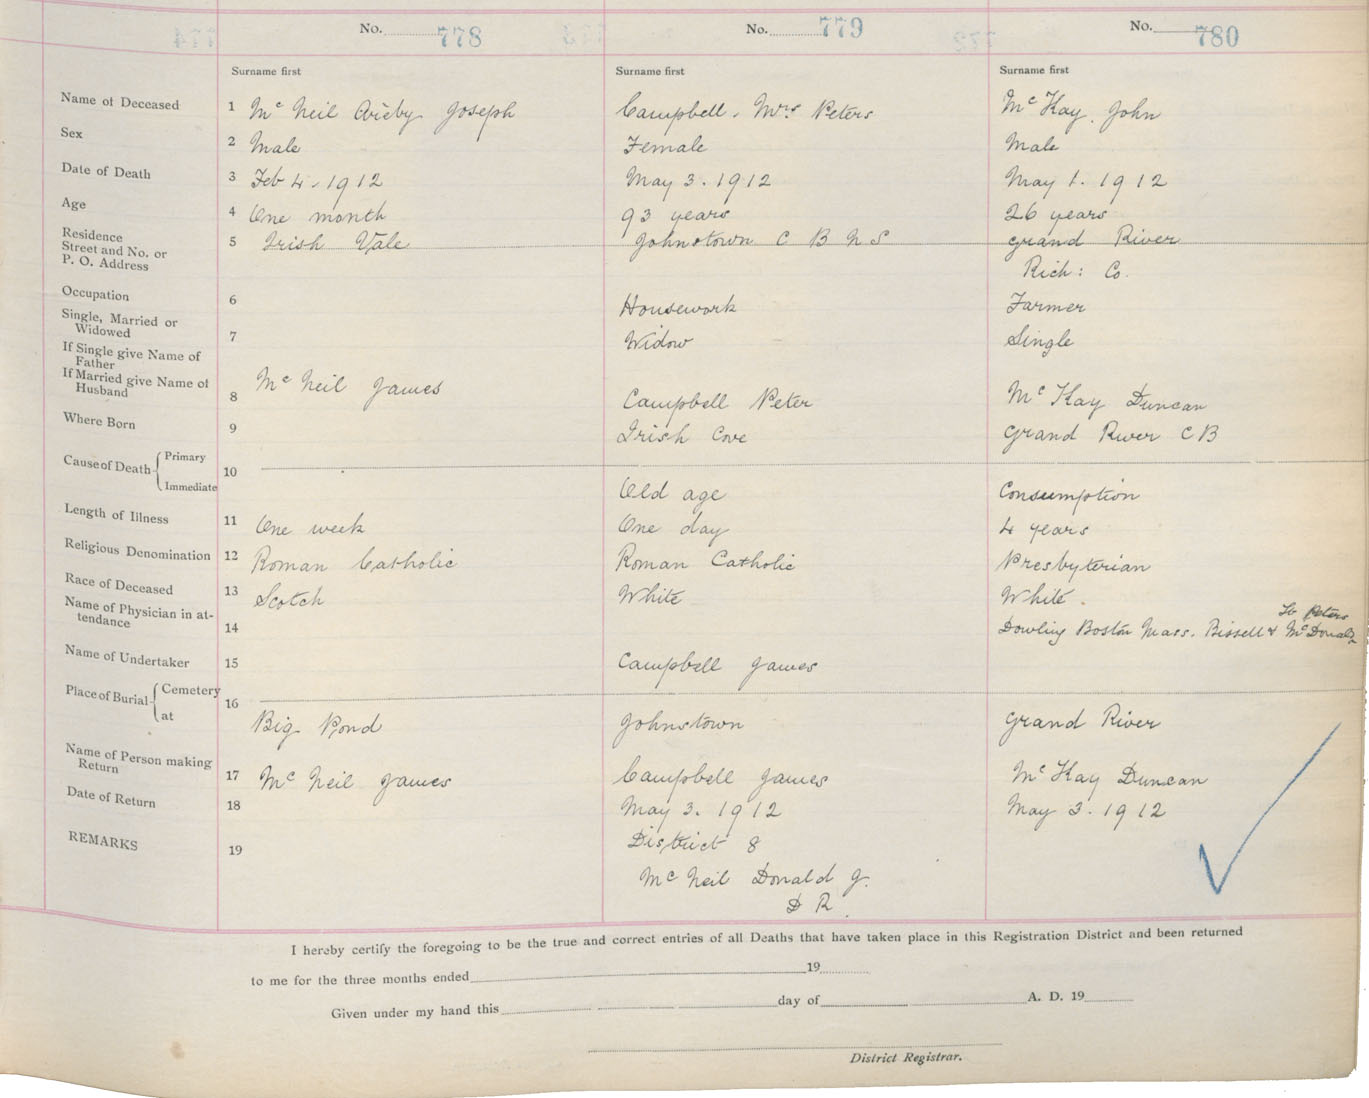 No. 778 No. 779 No. 780
Surname first Surname first Surname first
Name of Deceased 1 Mc Neil Joseph Campbell, Mrs Peters Mc Kay, John
Sex 2 Male Female Male
Date of Death 3 Feb 4, 1912 May 3. 1912 May 1. 1912
Age 4 One month 93 years 26 years
Residence
Street and No. or 5 Irish Vale Johnstown C B N S Grand River
P. O. Address Rich: Co.
Occupation 6 Housework Farmer
Single, Married or
Widowed 7 Widow Single
If Single give Name of
Father
If Married give Name of
Husband 8 Mc Neil James Campbell Peter Mc Kay Duncan
Where Born 9 Irish Cove Grand River C B
Cause of Death Primary
10
Immediate Old age Consumption
Length of Illness 11 One week One day 4 years
Religious Denomination 12 Roman Catholic Roman Catholic Presbyterian
Race of Deceased 13 Scotch White White.
Name of Physician in at-
tendance 14 Dowling Boston Mass. Bissell & McDonald St Peters
Name of Undertaker 15 Campbell James
Place of Burial Cemetery
16
at Big Pond Johnstown Grand River
Name of Person making
Return 17 Mc Neil James Campbell James Mc Kay Duncan
Date of Return 18 May 3. 1912 May 3. 1912
REMARKS 19 District 8
Mc Neil Donald J.
D R.
I hereby certify the foregoing to be the true and correct entries of all Deaths that have taken place in this Registration District and been returned
to me for the three months ended 19
Given under my hand this day of A. D. 19
District Registrar.